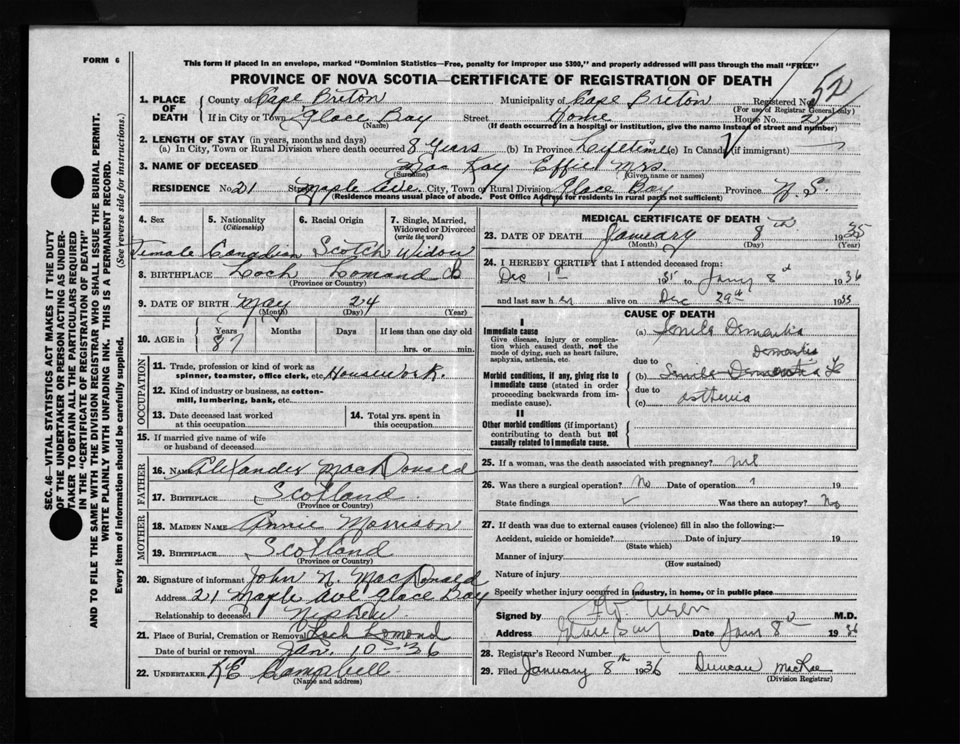 FORM 6
This form if placed in an envelope, marked "Dominion Statistics—Free, penalty for improper use $300," and properly addressed will pass through the mail "FREE"
PROVINCE OF NOVA SCOTIA—CERTIFICATE OF REGISTRATION OF DEATH
52
1. PLACE OF DEATH
County of Cape Breton Municipality of Cape Breton Registered No.
(For use of Registrar General only)
If in City or Town Glace Bay Street Home House No. 21
(Name) (If death occurred in a hospital or institution, give the name instead of street and number)
2. LENGTH OF STAY (in years, months and days)
(a) In City, Town or Rural Division where death occurred 8 Years (b) In Province Lifetime (c) In Canada (if immigrant)
3. NAME OF DECEASED Mac Kay Effie Mrs.
(Surname) (Given name or names)
RESIDENCE No. 21 Street Maple Ave. City, Town or Rural Division Glace Bay Province N.S.
(Residence means usual place of abode. Post Office Address for residents in rural parts not sufficient)
4. Sex 5. Nationality (Citizenship) 6. Racial Origin 7. Single, Married, Widowed or Divorced (write the word)
Female Canadian Scotch Widow
8. BIRTHPLACE Loch Lomond CB
(Province or Country)
9. DATE OF BIRTH May 24
(Month) (Day) (Year)
10. AGE in Years Months Days If less than one day old
87 hrs. or min.
OCCUPATION
11. Trade, profession or kind of work as spinner, teamster, office clerk, etc. Housework.
12. Kind of industry or business, as cotton-mill, lumbering, bank, etc.
13. Date deceased last worked at this occupation
14. Total yrs. spent in this occupation
15. If married give name of wife or husband of deceased
FATHER
16. NAME Alexander MacDonald
17. BIRTHPLACE Scotland
(Province or Country)
MOTHER
18. MAIDEN NAME Annie Morrison
19. BIRTHPLACE Scotland
(Province or Country)
20. Signature of informant John N. MacDonald
Address 21 Maple Ave Glace Bay
Relationship to deceased Nephew
21. Place of Burial, Cremation or Removal Loch Lomond
Date of burial or removal Jan. 10-36
22. UNDERTAKER Campbell
(Name and address)
MEDICAL CERTIFICATE OF DEATH
23. DATE OF DEATH January 8th 1935
(Month) (Day) (Year)
24. I HEREBY CERTIFY that I attended deceased from:
Dec 1st 1935 to Jany 8d 1936
and last saw her alive on Dec 29th 1935
CAUSE OF DEATH
I
Immediate cause
Give disease, injury or complication which caused death, not the mode of dying, such as heart failure, asphyxia, asthenia, etc.
(a) Senile Dementia
Dementia
due to
Morbid conditions, if any, giving rise to immediate cause (stated in order proceeding backwards from immediate cause).
(b) Senile Dementia
due to
(c) asthenia
II
Other morbid conditions (if important) contributing to death but not causally related to immediate cause.
25. If a woman, was the death associated with pregnancy?
26. Was there a surgical operation? No Date of operation 19
State findings Was there an autopsy? No
27. If death was due to external causes (violence) fill in also the following:—
Accident, suicide or homicide? Date of injury 19
(State which)
Manner of injury
(How sustained)
Nature of injury
Specify whether injury occurred in industry, in home, or in public place
Signed by M.D.
Address Glace Bay Date Jany 8d 1936
28. Registrar's Record Number
29. Filed January 8th 1936 Duncan MacRae
(Division Registrar)
SEC. 46—VITAL STATISTICS ACT MAKES IT THE DUTY
OF THE UNDERTAKER OR PERSON ACTING AS UNDER-
TAKER TO OBTAIN ALL THE PARTICULARS REQUIRED
IN THE "CERTIFICATE OF REGISTRATION OF DEATH"
AND TO FILE THE SAME WITH THE DIVISION REGISTRAR WHO SHALL ISSUE THE BURIAL PERMIT.
WRITE PLAINLY WITH UNFADING INK. THIS IS A PERMANENT RECORD.
Every item of Information should be carefully supplied. (See reverse side for instructions.)